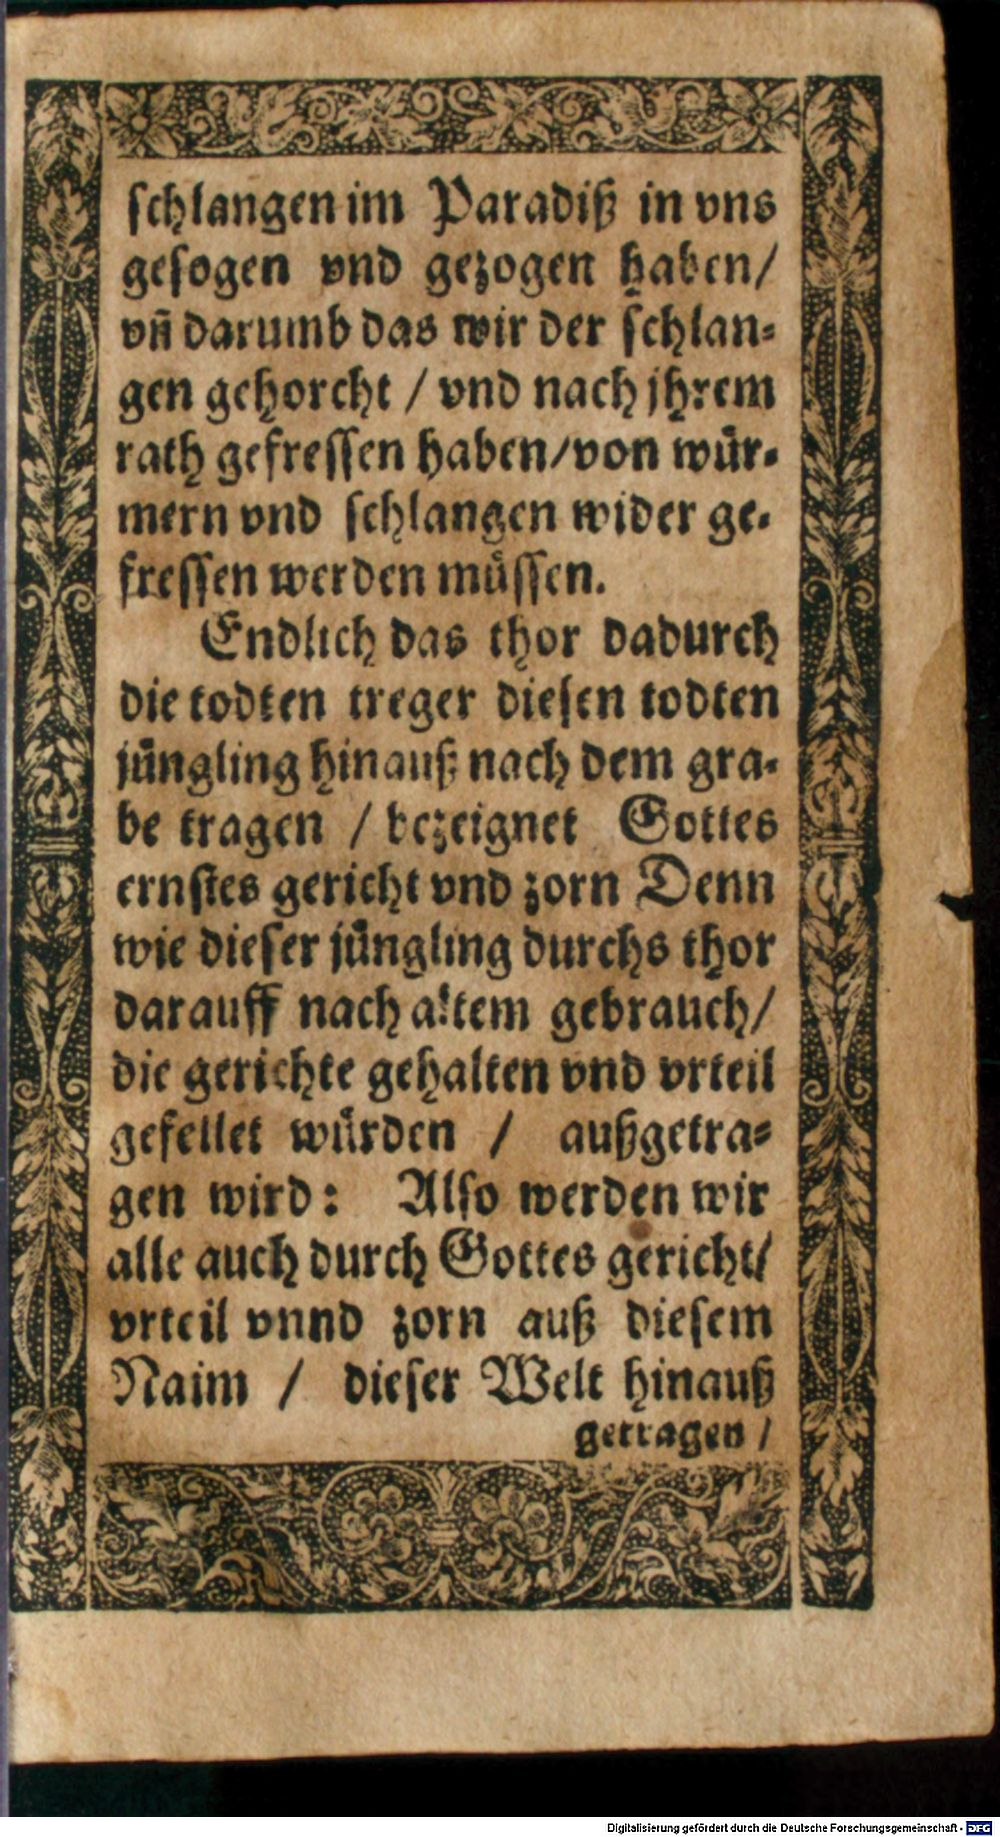 schlangen im Paradiß in vns
gesogen vnd gezogen haben/
vn̄ darumb das wir der schlan-
gen gehorcht / vnd nach jhrem
rath gefressen haben/von wuͤr-
mern vnd schlangen wider ge-
fressen werden muͤssen.
Endlich das thor dadurch
die todten treger diesen todten
juͤngling hinauß nach dem gra-
be tragen / bezeignet Gottes
ernstes gericht vnd zorn Denn
wie dieser juͤngling durchs thor
darauff nach altem gebrauch/
die gerichte gehalten vnd vrteil
gefellet wuͤrden / außgetra-
gen wird: Also werden wir
alle auch durch Gottes gericht/
vrteil vnnd zorn auß diesem
Naim / dieser Welt hinauß
getragen /
Digitalisierung gefördert durch die Deutsche Forschungsgemeinschaft - DFG